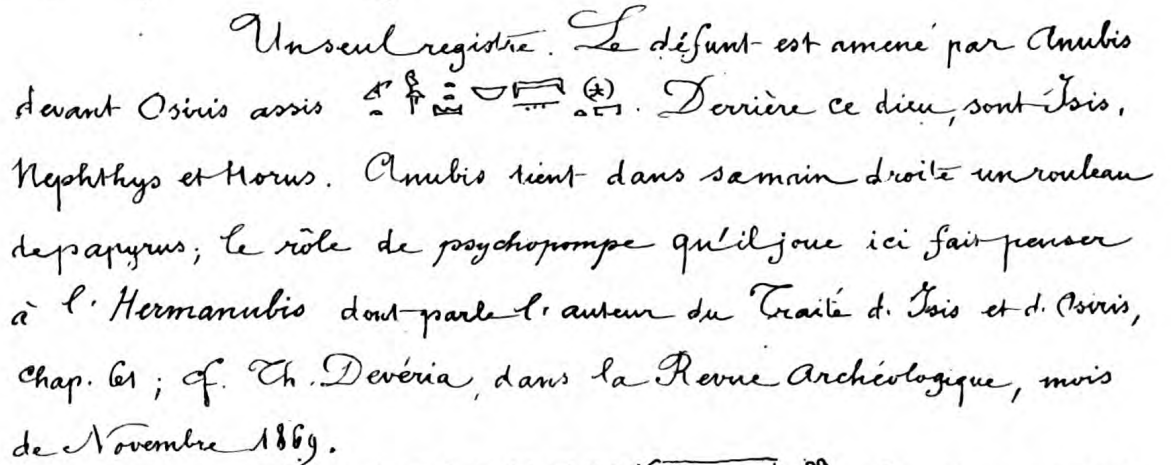 Un seul registre. Le défunt est amené par Anubis
devant Osiris assis . Derrière ce dieu, sont Isis,
Nephthys et Horus. Anubis tient dans sa main droite un rouleau
de papyrus; le rôle de psychopompe qu'il joue ici fait penser
à l'Hermanubis dont parle l'auteur du Traité d. Isis et d. Osiris,
chap. 61; cf. Th. Devéria, dans la Revue Archéologique, mois
de Novembre 1869.